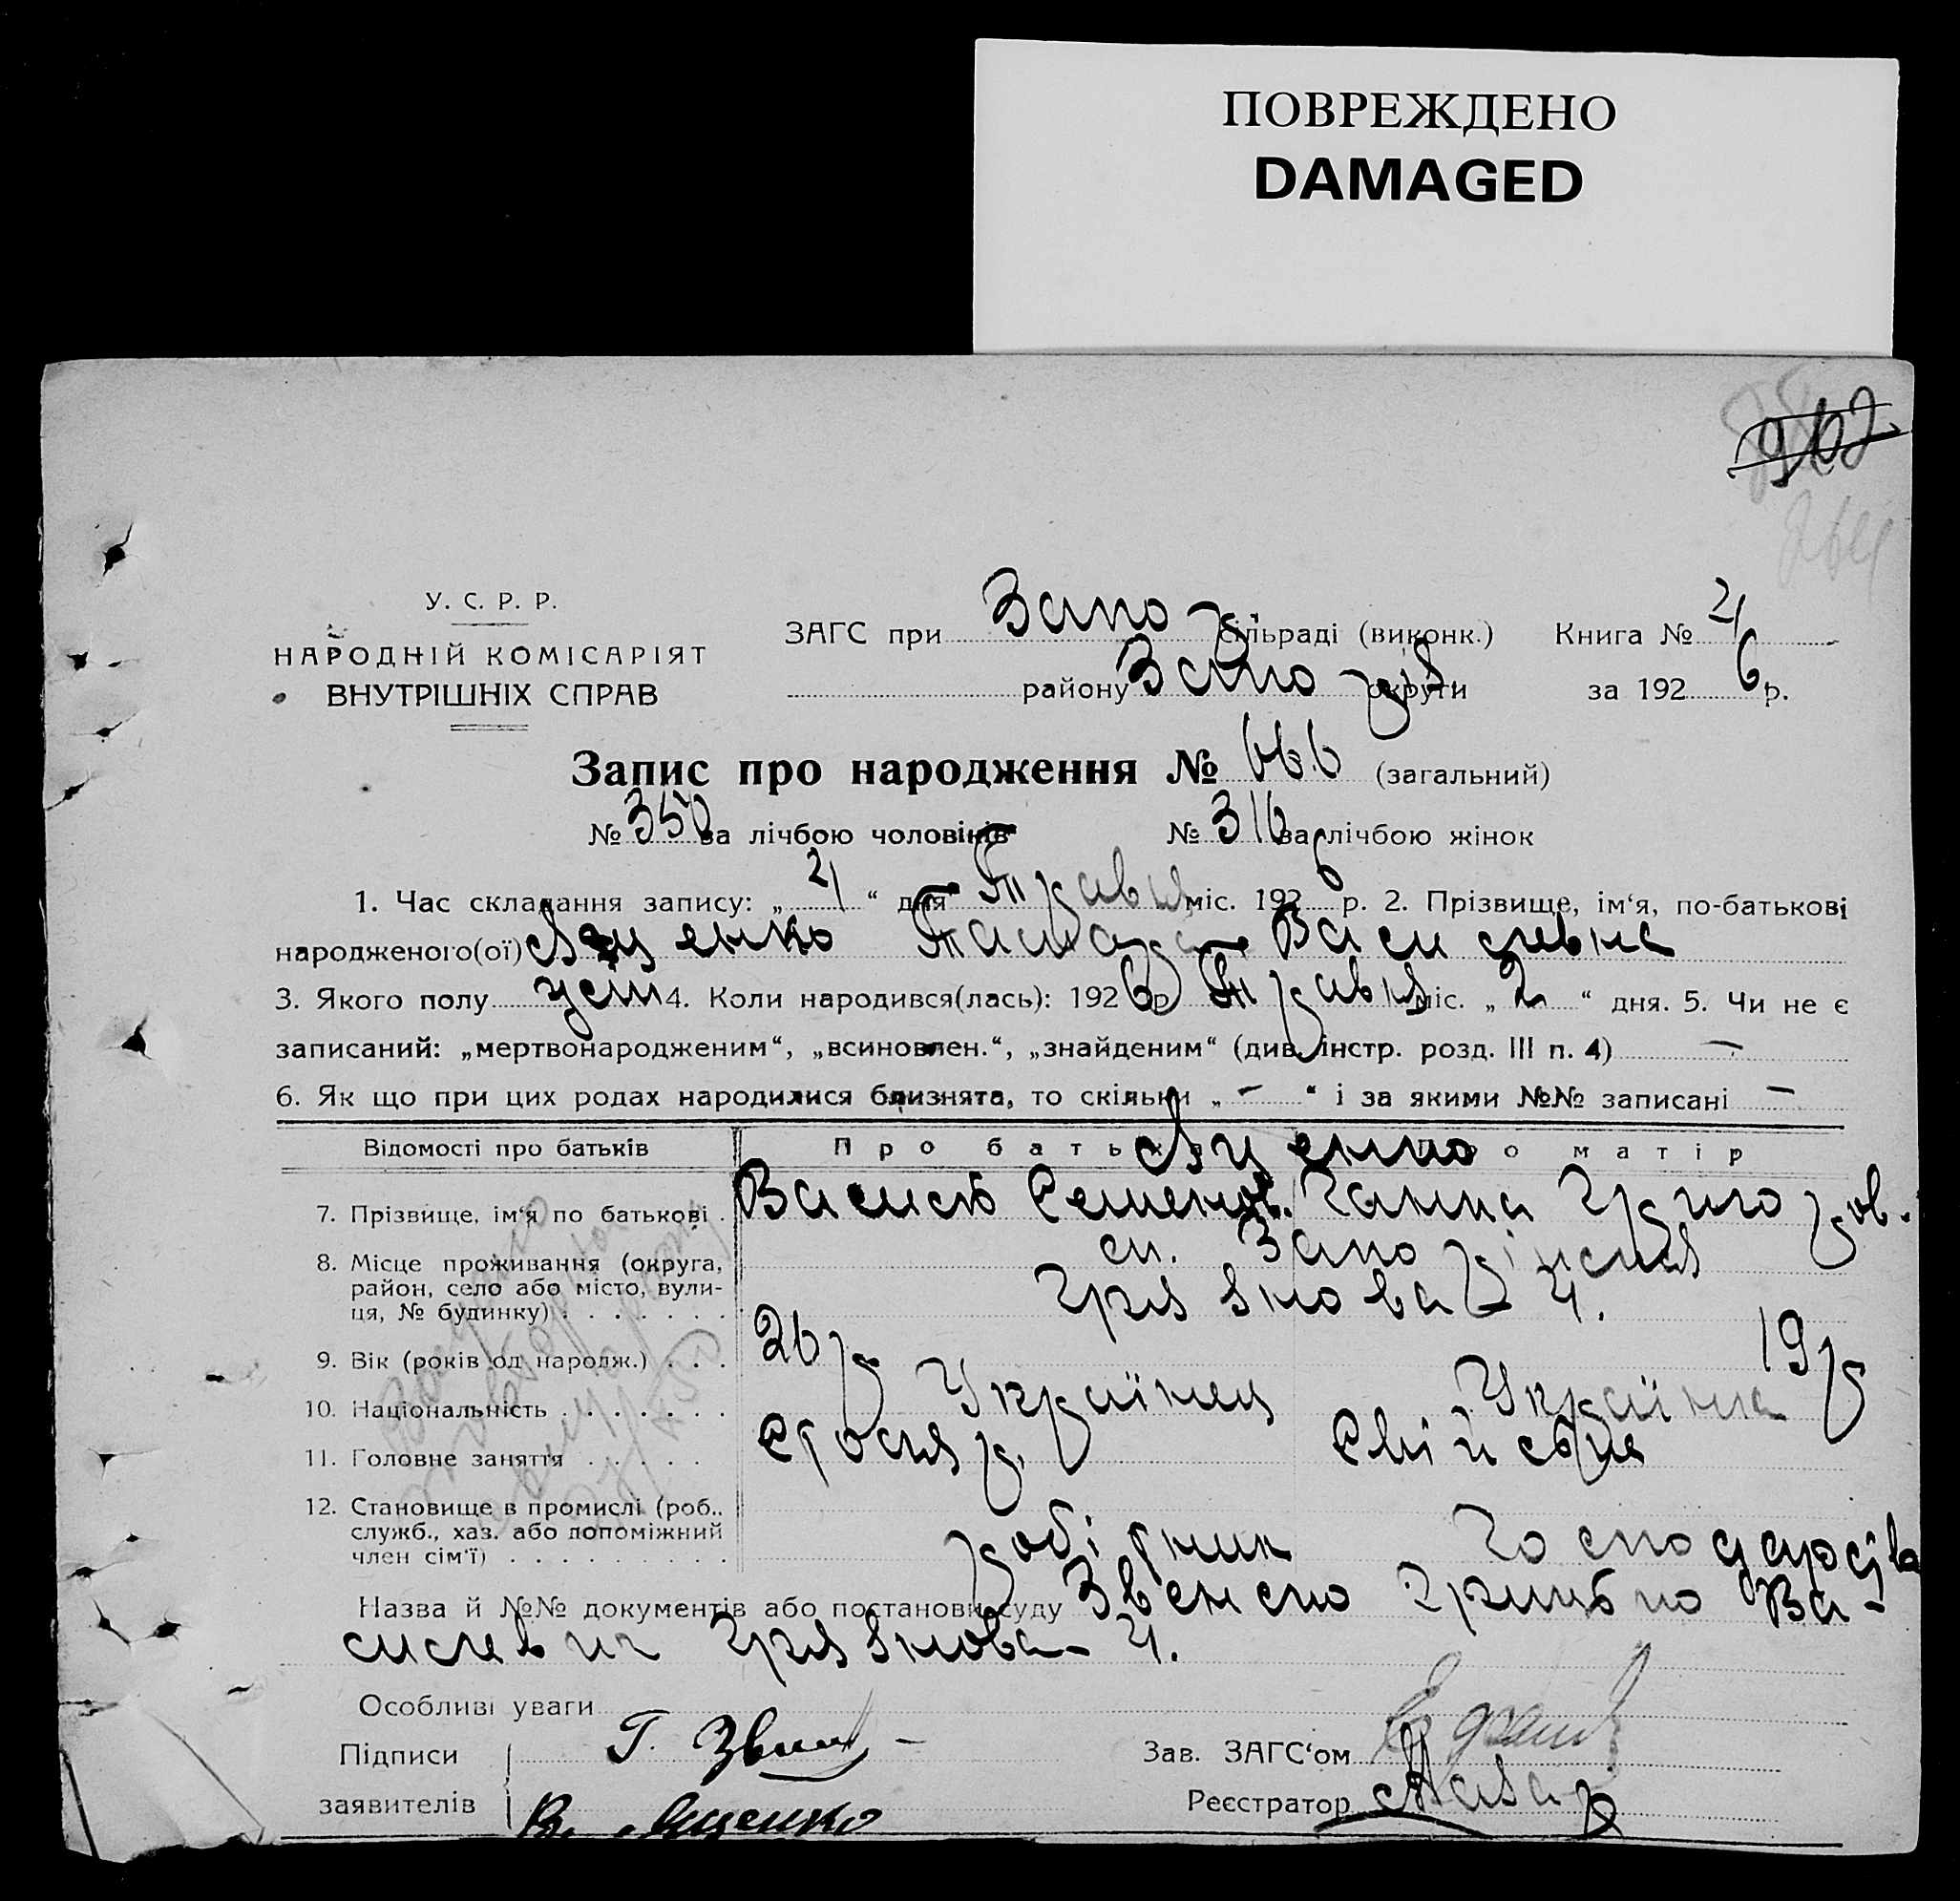 ПОВРЕЖДЕНО
DAMAGED
У. С. Р. Р.
НАРОДНІЙ КОМІСАРІЯТ
ВНУТРІШНІХ СПРАВ
ЗАГС при Запор сільраді (виконк.) Книга № 4
району Запоріз округи за 1926 р.
Запис про народження № 666 (загальний)
№ 350 за лічбою чоловіків № 316 за лічбою жінок
1. Час складання запису: „ 4 “ дня Травня міс. 1926 р. 2. Прізвище, ім‘я, по-батькові
народженого(ої) Яценко Тамара Василевна
3. Якого полу жін 4. Коли народився(лась): 1926 р. Травня міс. „ 2 “ дня. 5. Чи не є
записаний: „мертвонародженим“, „всиновлен.“, „знайденим“ (див. інстр. розд. III п. 4) —
6. Як що при цих родах народилися близнята, то скільки „ — “ і за якими №№ записані —
Відомості про батьків Про батька Яценко Про матір
7. Прізвище, ім‘я по батькові . Василь Семенов. Ганна Григоров.
8. Місце проживання (округа, ст. Запоріжжя
район, село або місто, вули- Грязнова 4.
ця, № будинку) . . . . . . .
9. Вік (років од народж.) . . . 26 р 19 р
10. Національність . . . . . . . Українец Українка
11. Головне заняття . . . . . Слюсар.
12. Становище в промислі (роб..
служб., хаз. або допоміжний
член сім‘ї) . . . . . . . . . робітник господарств
Назва й №№ документів або постанови суду Ва-
силевич Грязнова 4.
Особливі уваги
Підписи Г. Зав. ЗАГС‘ом
заявителів В. Яценко Реєстратор